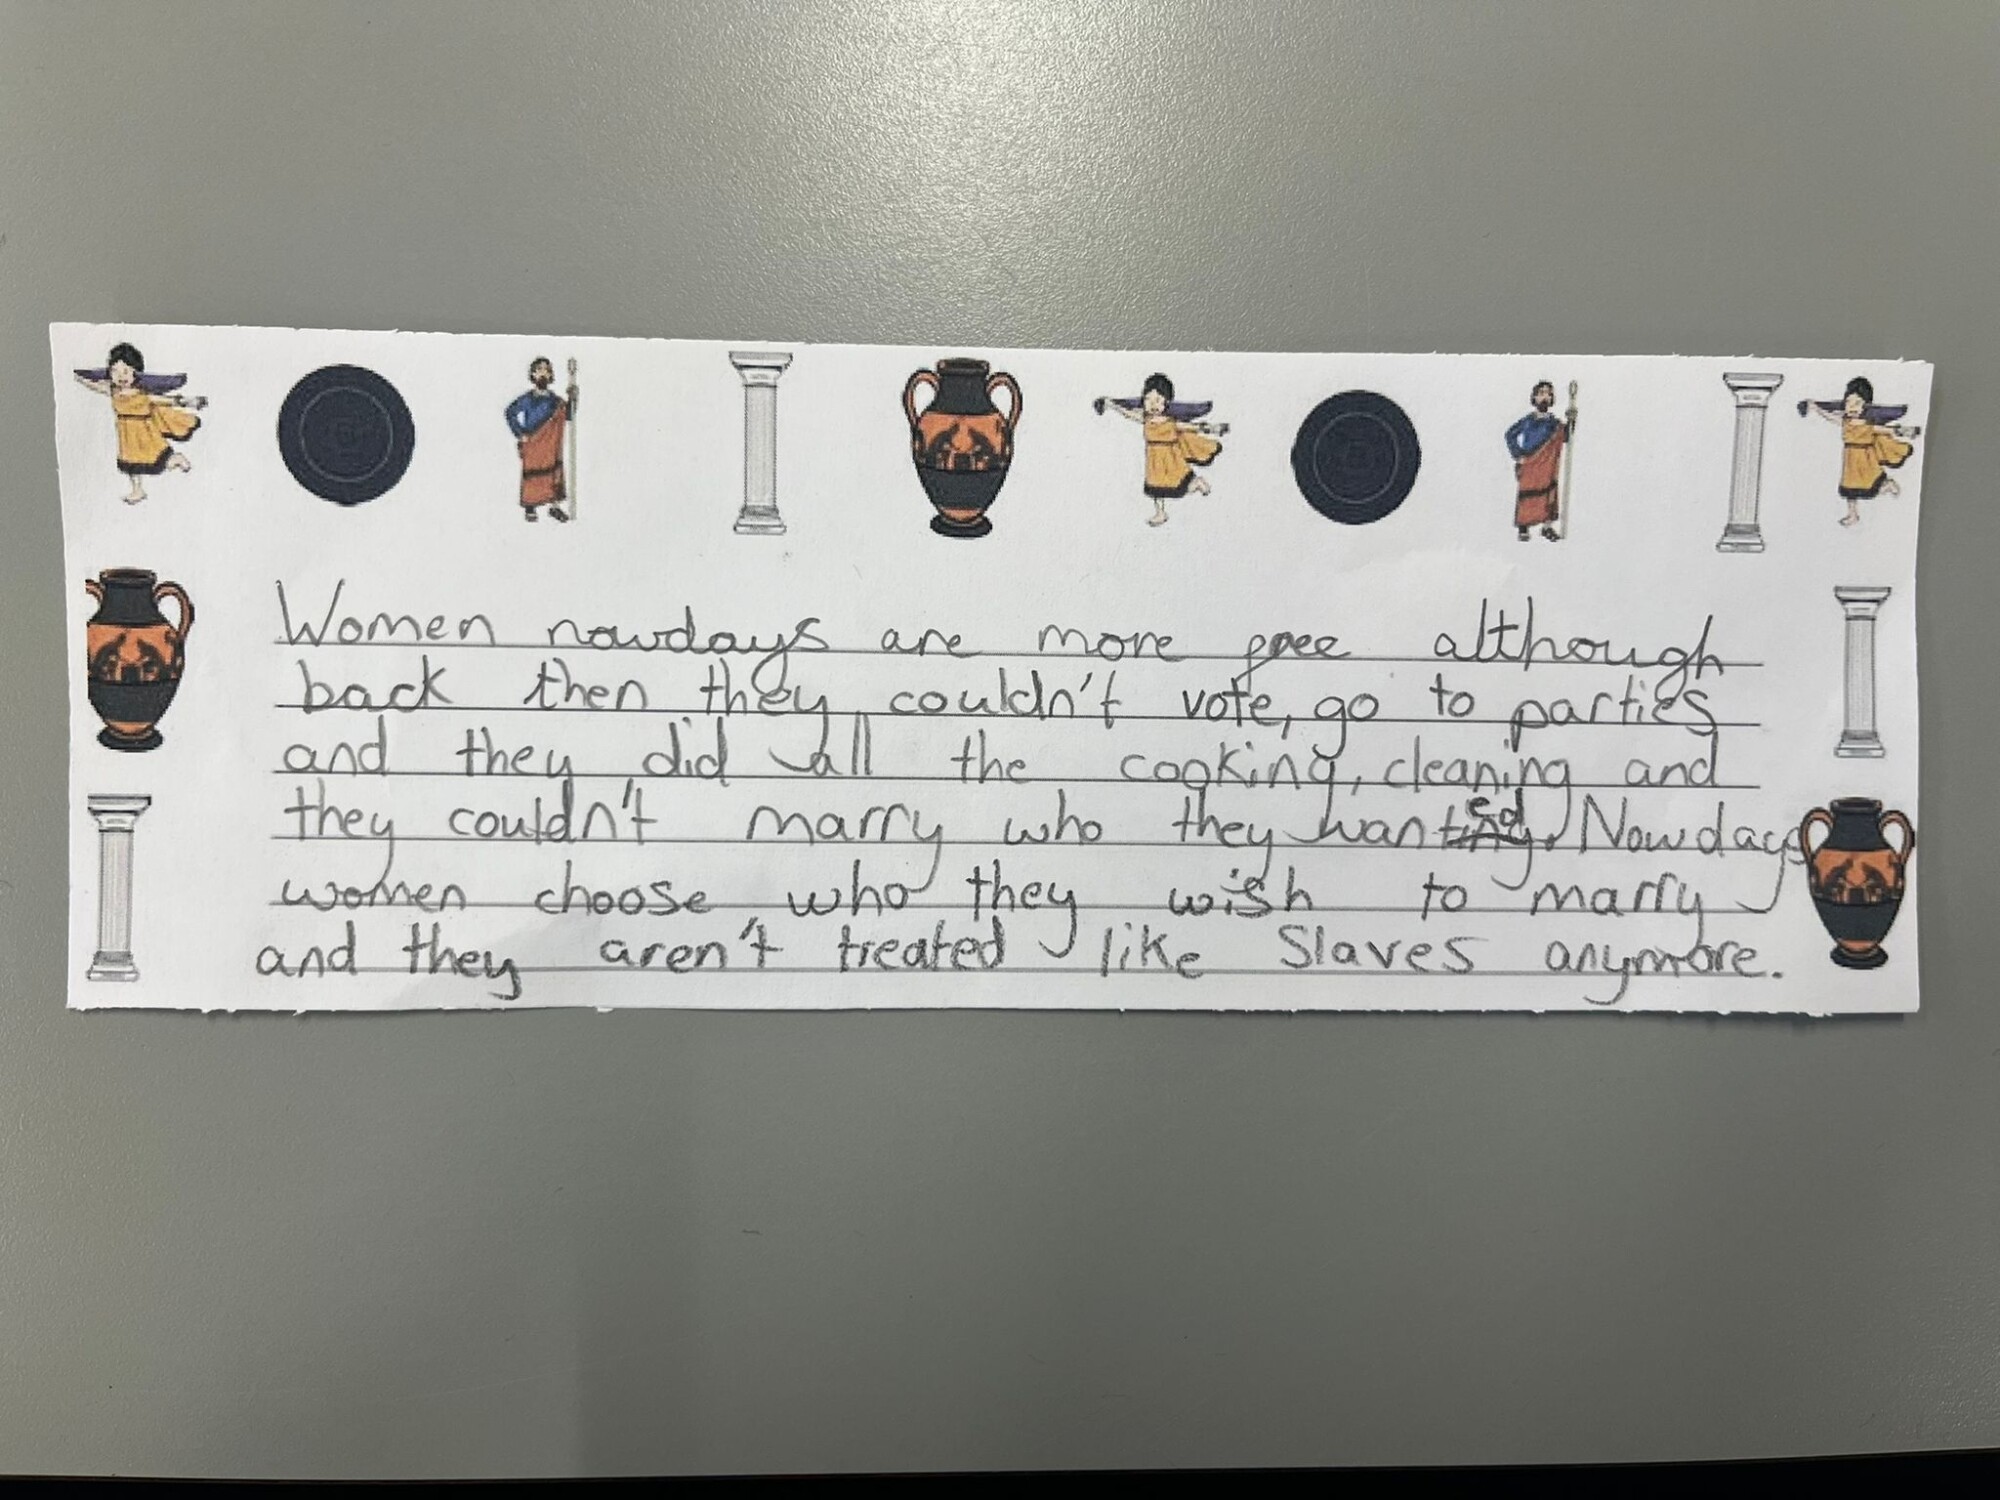 Women nowdays are more free although
back then they couldn't vote, go to parties
and they did all the cooking, cleaning and
they couldn't marry who they wanted. Nowdays
women choose who they wish to marry
and they aren't treated like Slaves anymore.